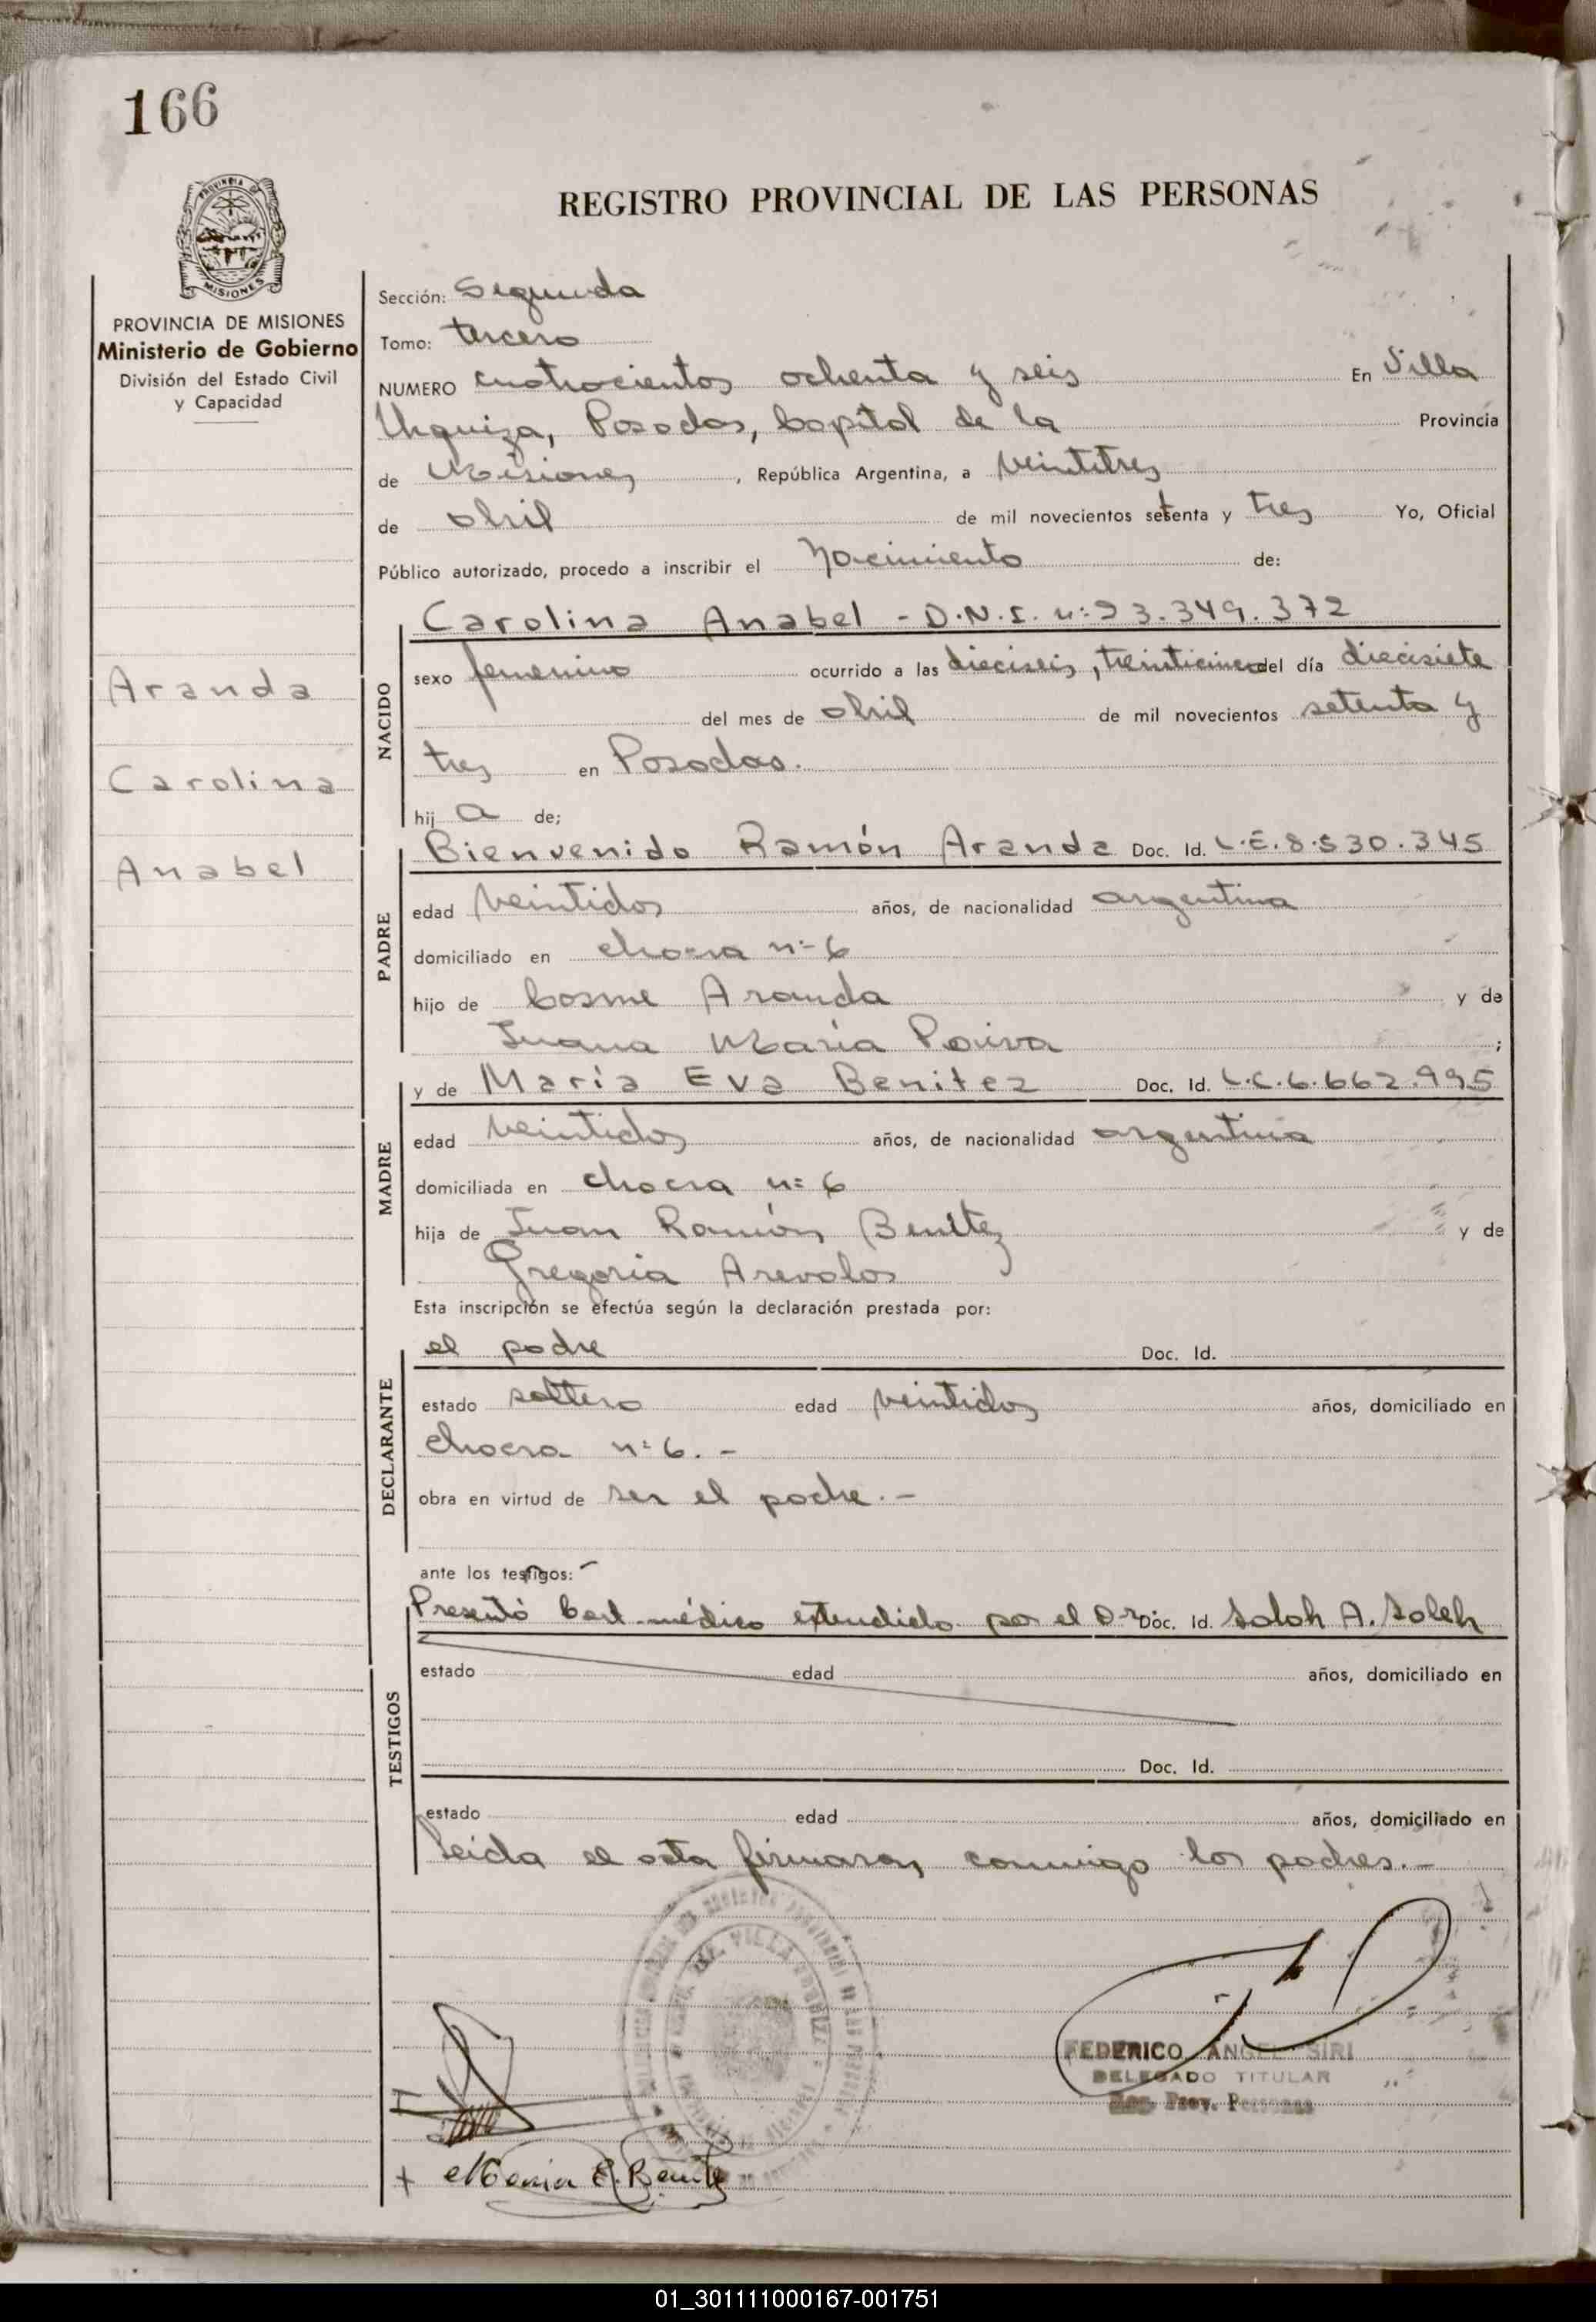 166
REGISTRO PROVINCIAL DE LAS PERSONAS
PROVINCIA DE
MISIONES
PROVINCIA DE MISIONES
Ministerio de Gobierno
División del Estado Civil
y Capacidad
Aranda
Carolina
Anabel
Sección: Segunda
Tomo: tercero
NUMERO cuatrocientos ochenta y seis En Villa
Urquiza, Posadas, Capital de la Provincia
de Misiones, República Argentina, a veintitres
de abril de mil novecientos setenta y tres Yo, Oficial
Público autorizado, procedo a inscribir el Nacimiento de:
Carolina Anabel - D.N.I. n:23.349.372
NACIDO
sexo femenino ocurrido a las dieciseis, treinticinco del día diecisiete
del mes de abril de mil novecientos setenta y
tres en Posadas.
hij a de;
PADRE
Bienvenido Ramón Aranda Doc. Id. L.E.8.530.345
edad veintidos años, de nacionalidad argentina
domiciliado en chacra n:6
hijo de Cosme Aranda y de
Juana María Paiva ;
MADRE
y de María Eva Benitez Doc. Id. L.C.6.662.995
edad veintidos años, de nacionalidad argentina
domiciliada en chacra n:6
hija de Juan Ramón Benítez y de
Gregoria Arevalos
Esta inscripción se efectúa según la declaración prestada por:
DECLARANTE
el padre Doc. Id.
estado soltero edad veintidos años, domiciliado en
chacra n:6. -
obra en virtud de ser el padre. -
ante los testigos: -
TESTIGOS
Presentó Cert. médico extendido por el Dr. Doc. Id. Saloh A. Saleh
estado edad años, domiciliado en
Doc. Id.
estado edad años, domiciliado en
Leida el acta firmaron conmigo los padres. -
FEDERICO ANGEL SIRI
DELEGADO TITULAR
Reg. Prov. Personas
+ Maria E. Benitez
01_301111000167-001751